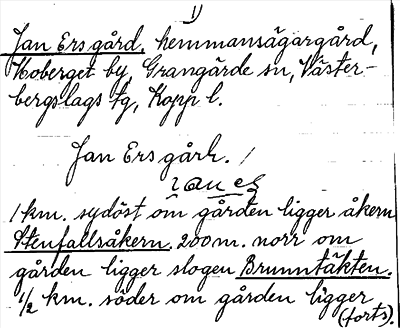 1)
Jan Ers gård, hemmansägargård,
Hoberget by, Grangärde sn, Väster-
bergslags tg, Kopp l.
Jan Ers gård. /
1 km. sydöst om gården ligger åkern
Stenfallsåkern. 200 m. norr om
gården ligger slogen Brunntäkten.
1/2 km. söder om gården ligger
(forts).